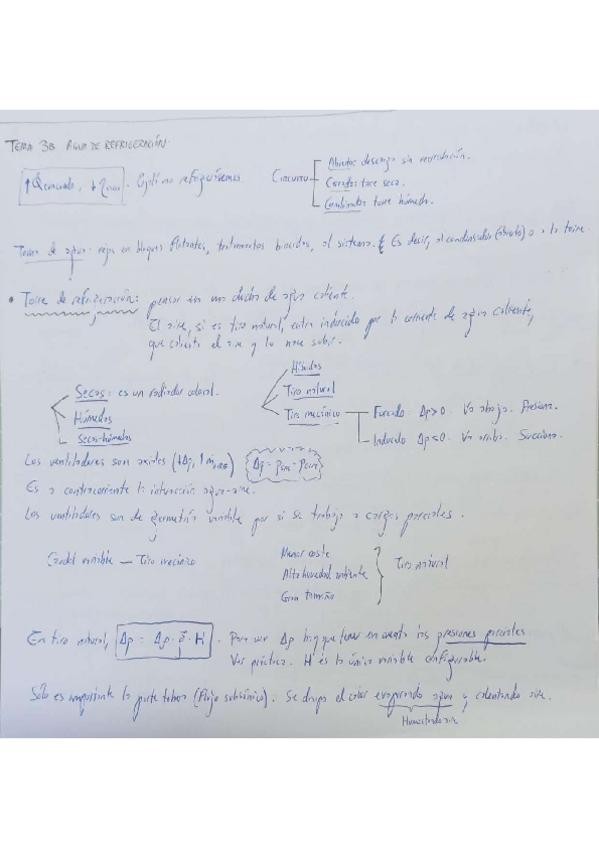 TEMA 3B AGUA DE REFRIGERACIÓN.
Circuitos
Abiertos descarga sin recirculación.
Cerrados torre seca.
Combinados torre húmeda.
Toma de agua: rejas en bloques flotantes, tratamientos biocidas, al sistema. Es decir, al condensador (abierto) o a la torre.
• Torre de refrigeración: pensar en una ducha de agua caliente.
El aire, si es tiro natural, entra inducido por la corriente de agua caliente,
que calienta el aire y lo hace subir.
Secas: es un radiador colosal.
Húmedas
Secas-húmedas
Híbridos
Tiro natural
Tiro mecánico
Forzado Δp>0. Va abajo. Presiona.
Inducido Δp<0. Va arriba. Succiona.
Los ventiladores son axiales
Es a contracorriente la interacción agua-aire.
Los ventiladores son de geometría variable por si se trabaja a cargas parciales.
Caudal variable — Tiro mecánico
Menor coste
Alta humedad ambiente
Gran tamaño
Tiro natural
En tiro natural, Δp = Δρ · g · H. Para ver Δρ hay que tener en cuenta las presiones parciales
Ver práctica. H es la única variable configurable.
Sólo es importante la parte (flujo subsónico). Se disipa el calor evaporando agua y calentando aire.